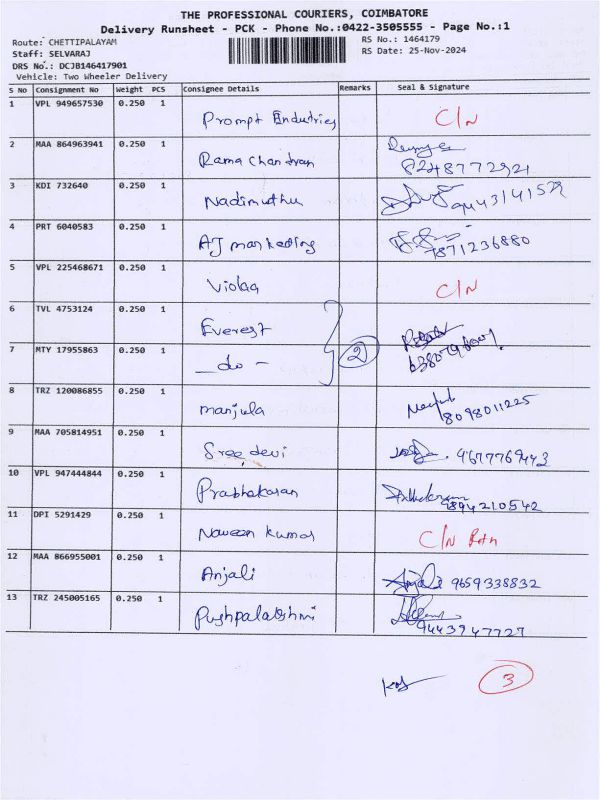 THE PROFESSIONAL COURIERS, COIMBATORE
Delivery Runsheet - PCK - Phone No.:0422-3505555 - Page No.:1
Route: CHETTIPALAYAM
RS No.: 1464179
Staff: SELVARAJ
RS Date: 25-Nov-2024
DRS No.: DCJB146417901
Vehicle: Two Wheeler Delivery
S No Consignment No Weight PCS Consignee Details Remarks Seal & Signature
1 VPL 949657530 0.250 1 Prompt Endustries C/N
2 MAA 864963941 0.250 1 Rama Chandran 8248772921
3 KDI 732640 0.250 1 Nadimuthu 9443141529
4 PRT 6040583 0.250 1 AJ marketing 9871236880
5 VPL 225468671 0.250 1 Violaa C/N
6 TVL 4753124 0.250 1 Everest
7 MTY 17955863 0.250 1 _do - 2
8 TRZ 120086855 0.250 1 manjula 8098011225
9 MAA 705814951 0.250 1 Sree devi 9677769443
10 VPL 947444844 0.250 1 Prabhakaran 9894210542
11 DPI 5291429 0.250 1 Naveen Kumar C/N Retn
12 MAA 866955001 0.250 1 Anjali 9659338832
13 TRZ 245005165 0.250 1 Pushpalakshmi 9443947727
3